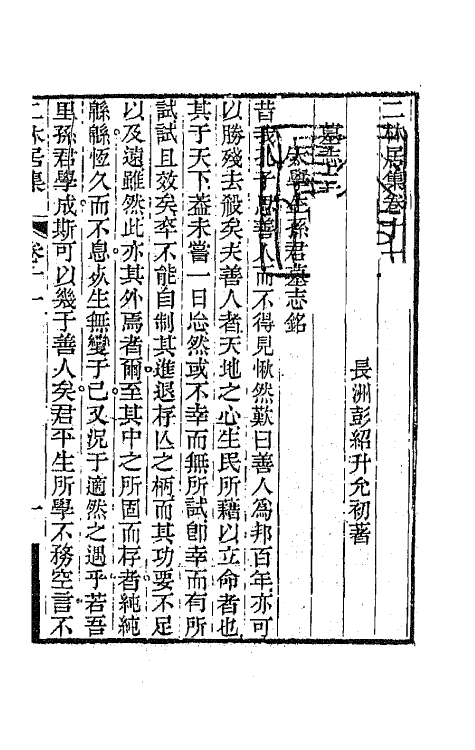 二林居集卷十
長洲彭紹升允初著
墓志
太學生孫君墓志銘
昔我孔子思善人而不得見愀然歎曰善人爲邦百年亦可
以勝殘去殺矣夫善人者天地之心生民所藉以立命者也
其于天下葢未嘗一日㤀然或不幸而無所試卽幸而有所
試試且效矣卒不能自制其進退存亾之柄而其功要不足
以及遠雖然此亦其外焉者爾至其中之所固而存者純純
緜緜恆久而不息夾生無變于己又況于適然之遇乎若吾
里孫君學成斯可以幾于善人矣君平生所學不務空言不
二林居集
卷十一
一